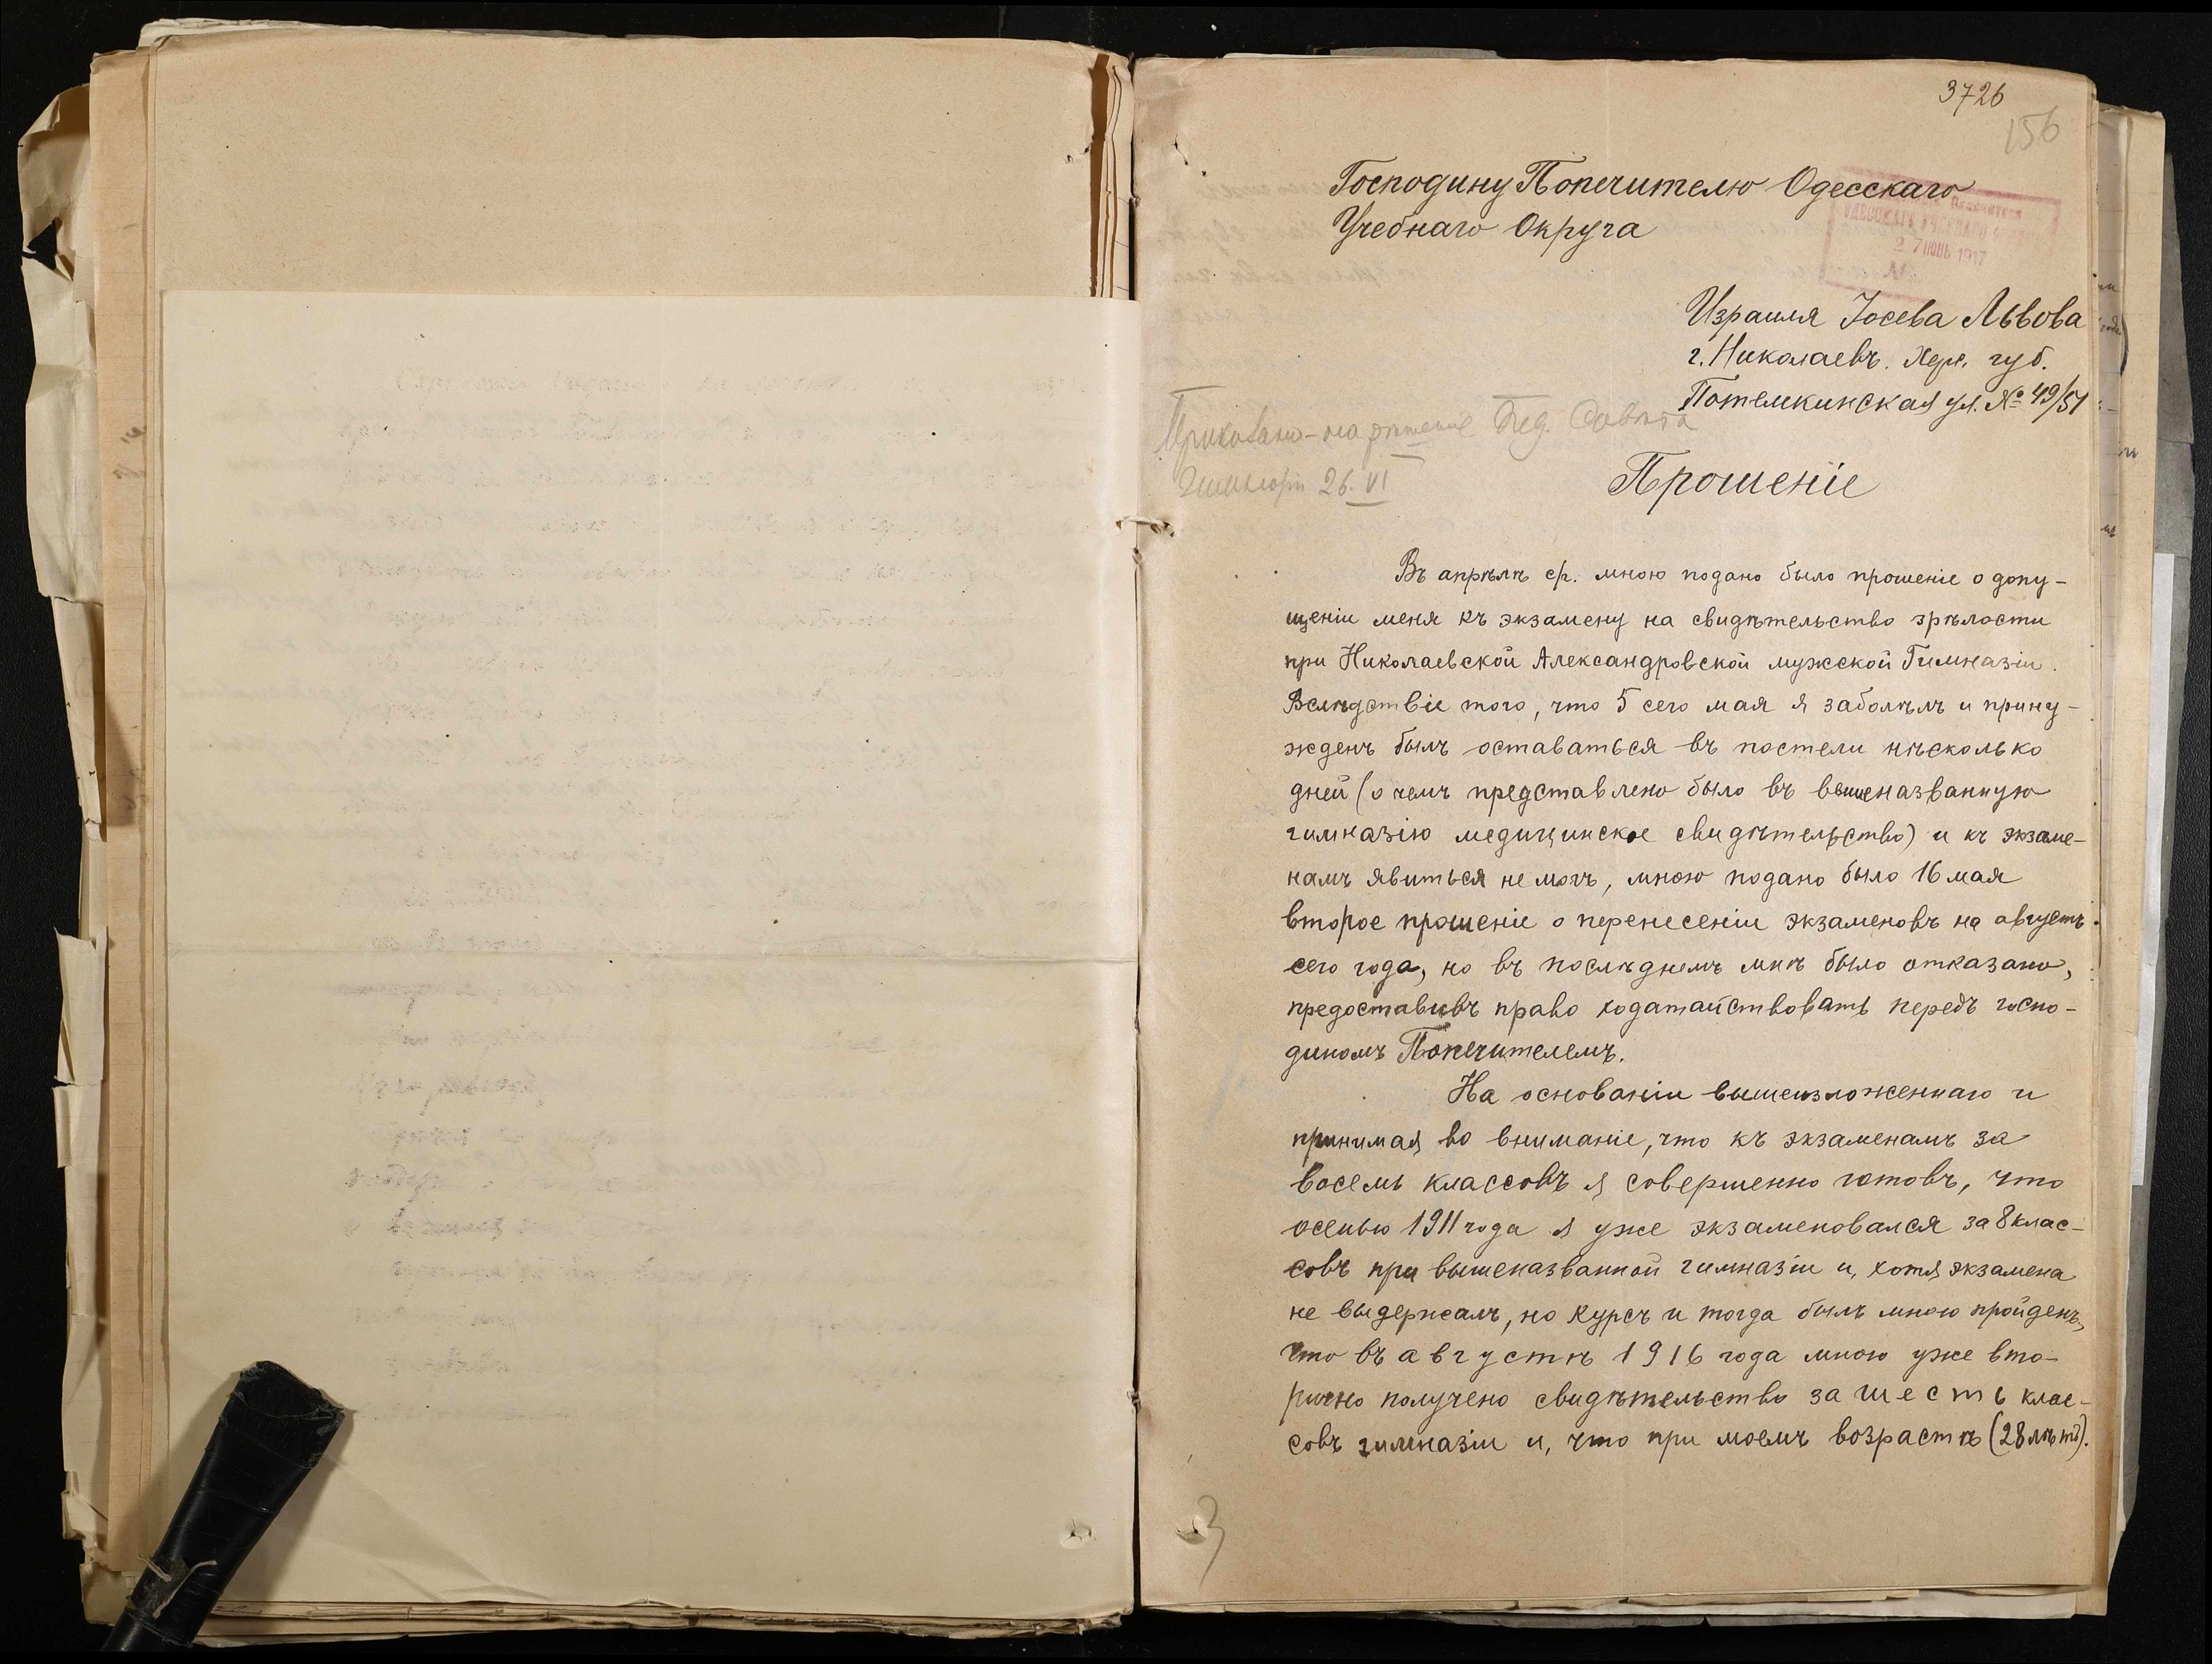 3726
156
Господину Попечителю Одесскаго
Учебнаго Округа
ОДЕССКАГО УЧЕБНАГО
27 ІЮНЬ 1917
№
Израиля Іосева Львова
г. Николаевъ. Хер. губ.
Потемкинская ул. № 49/51
на рѣшеніе Пед. Совѣта
26. VI
Прошеніе
Въ апрѣлѣ с/г. мною подано было прошеніе о допу-
щеніи меня къ экзамену на свидѣтельство зрѣлости
при Николаевской Александровской мужской Гимназіи.
Вслѣдствіе того, что 5 сего мая я заболѣлъ и прину-
жденъ былъ оставаться въ постели нѣсколько
дней (о чемъ представлено было въ вышеназванную
гимназію медицинское свидѣтельство) и къ экзаме-
намъ явиться не могъ, мною подано было 16 мая
второе прошеніе о перенесеніи экзаменовъ на августъ
сего года, но въ послѣднемъ мнѣ было отказано,
предоставивъ право ходатайствовать передъ госпо-
диномъ Попечителемъ.
На основаніи вышеизложеннаго и
принимая во вниманіе, что къ экзаменамъ за
восемь классовъ я совершенно готовъ, что
осенью 1911 года я уже экзаменовался за 8 клас-
совъ при вышеназванной гимназіи и, хотя экзамена
не выдержалъ, но курсъ и тогда былъ мною пройденъ,
что въ августѣ 1916 года мною уже вто-
рично получено свидѣтельство за шесть клас-
совъ гимназіи и, что при моемъ возрастѣ (28 лѣтъ).
3